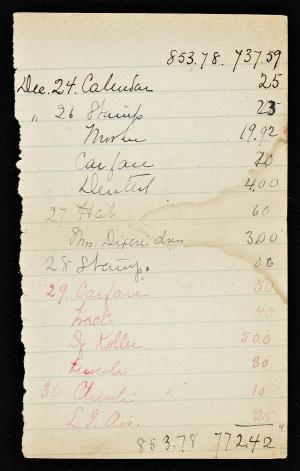 853.78. 737.59
Dec. 24. Calendar 25
" 26 Stamps 25
19.92
Carfare 70
Dentist 4.00
27 Hat 60
Mrs. 3.00
28 Stamp. 06
29. Carfare 50
40
Dr Koller 500
Lunch 30
30 Church 10
L I 25
853.78 772.42